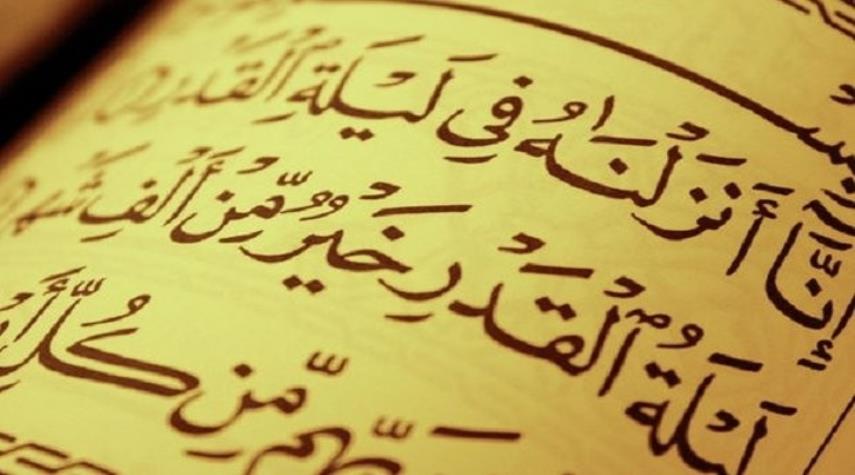 إِنَّآ أَنزَلْنَٰهُ فِي لَيْلَةِ ٱلْقَدْرِ
لَيْلَةُ ٱلْقَدْرِ خَيْرٌ مِّنْ أَلْفِ شَهْرٍ
مِّن كُلِّ